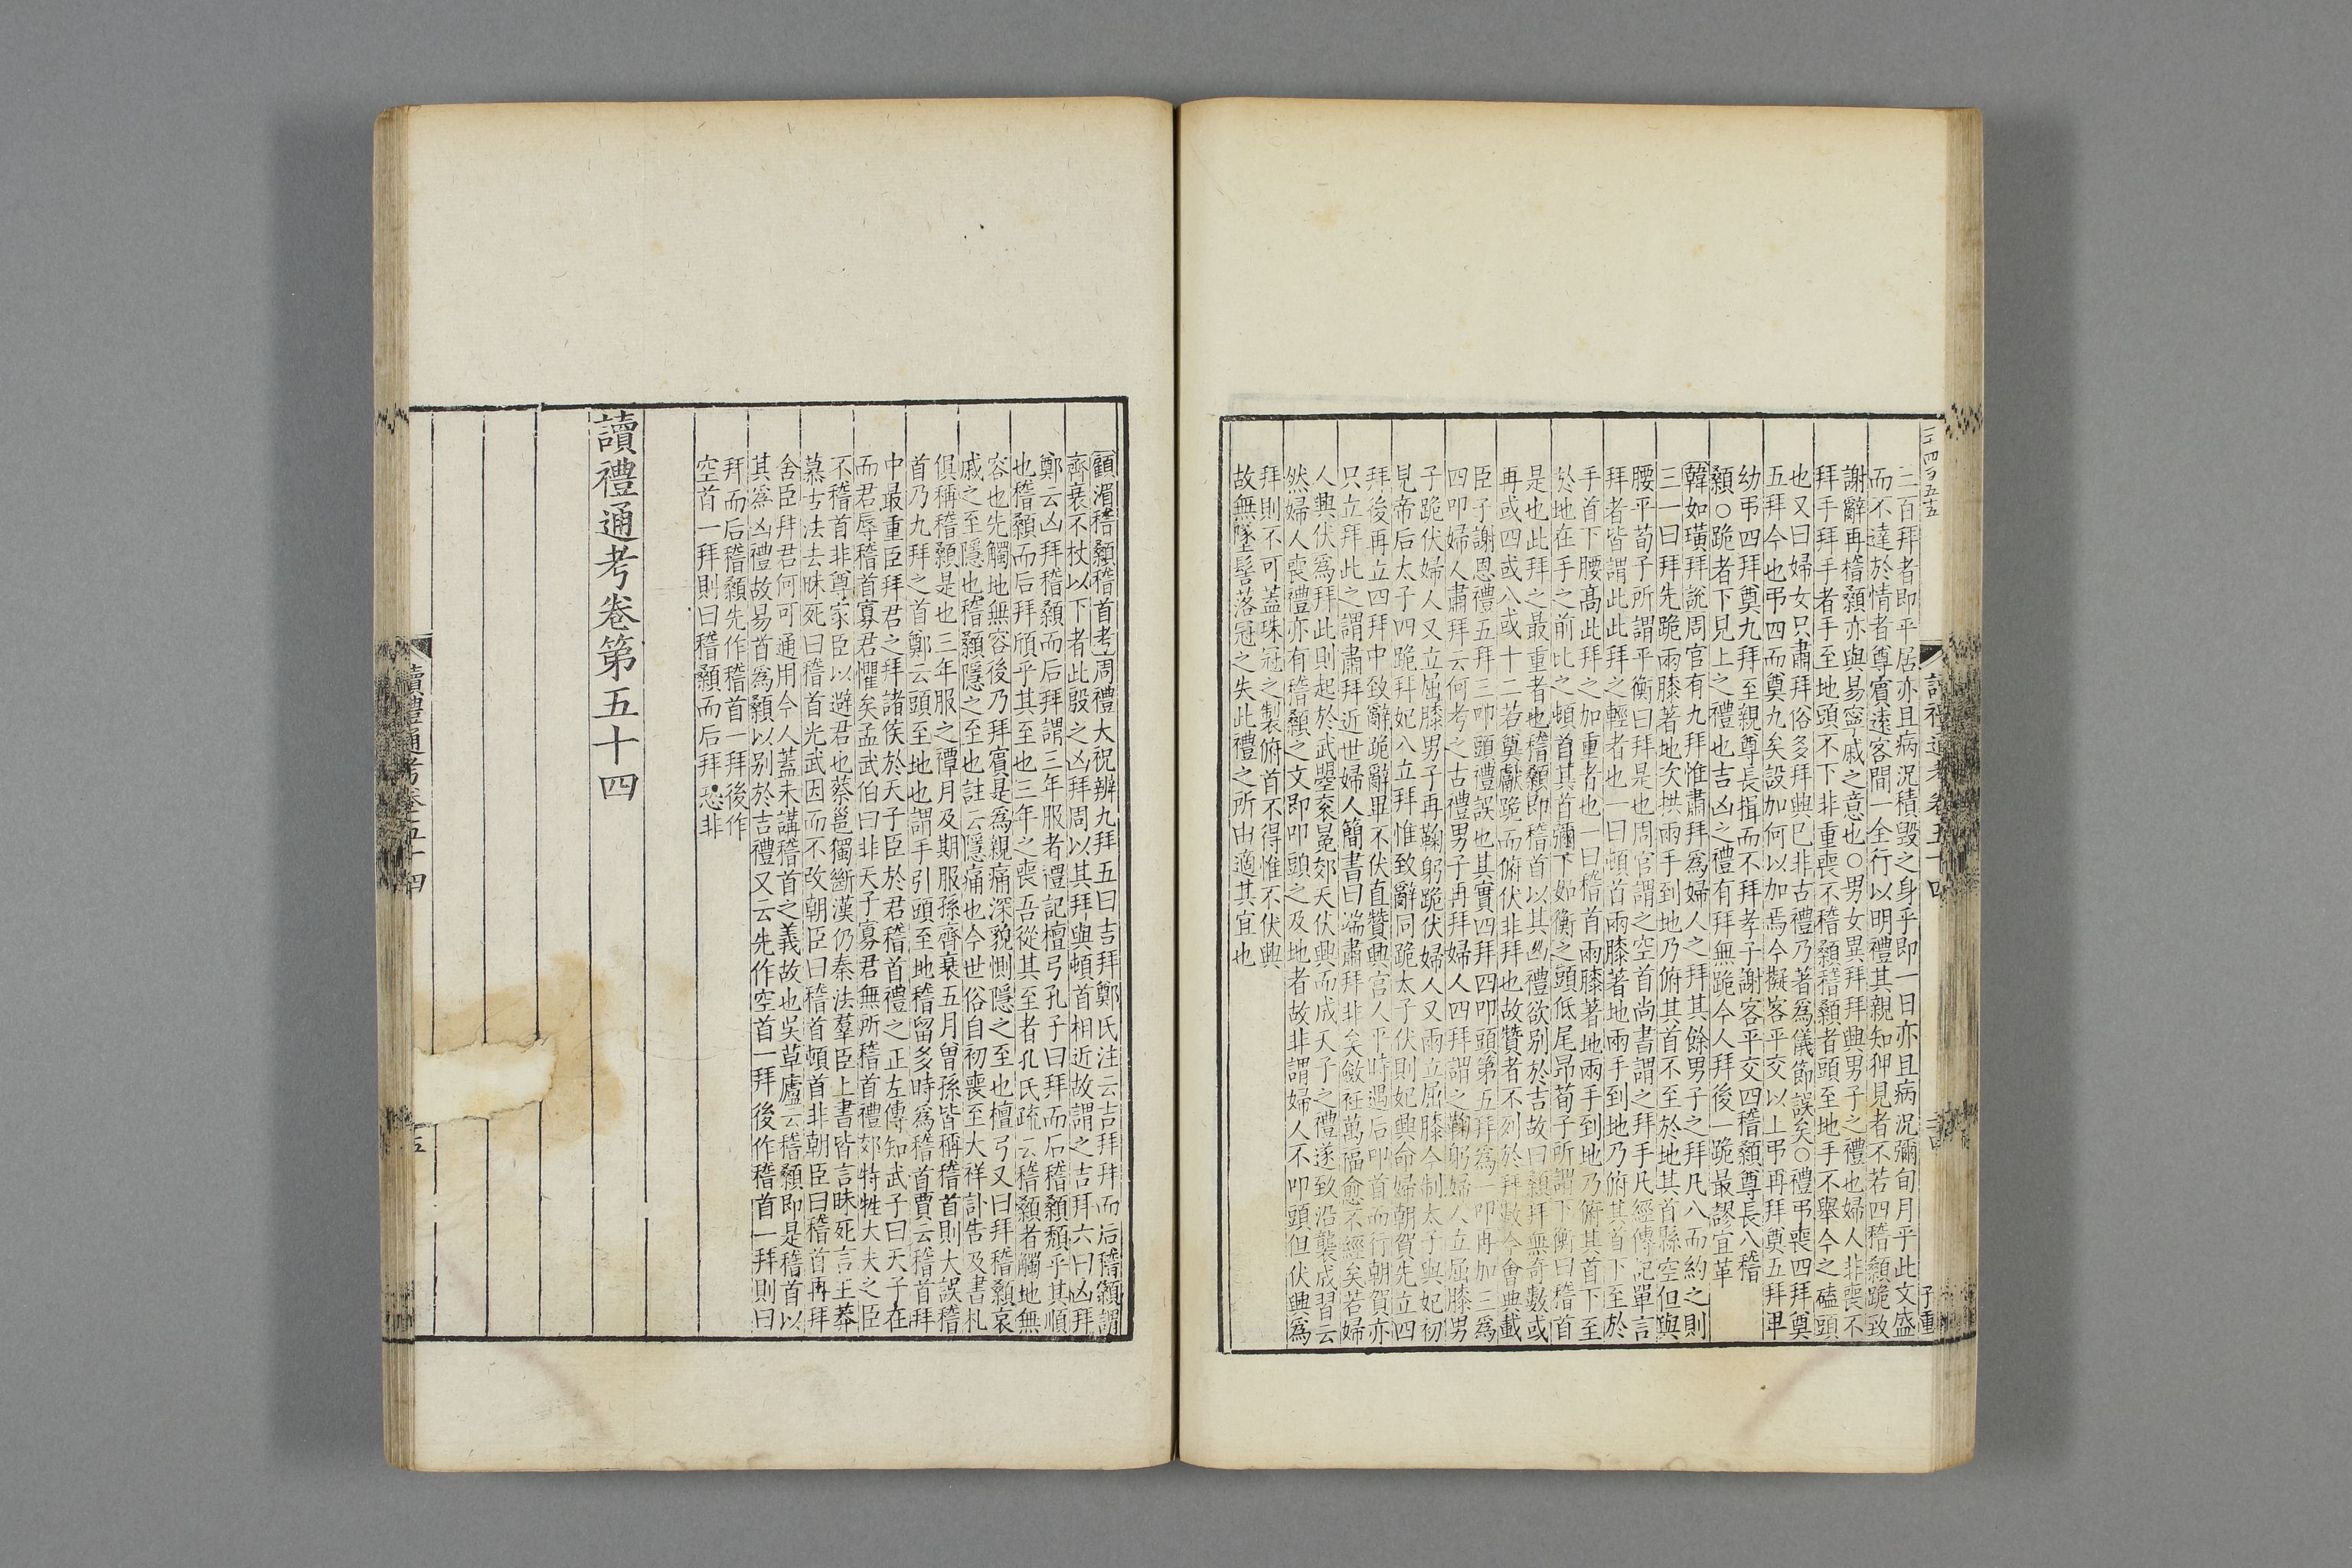 三百拜者即平居亦且病況積毀之身乎即一日亦且病況彌旬月乎此文盛
而不達於情者尊賓遠客間一全行以明禮其親知狎見者不若四稽顙跪致
謝辭再稽顙亦與易寧戚之意也○男女異拜拜興男子之禮也婦人非喪不
拜手拜手者手至地頭不下非重喪不稽顙稽顙者頭至地手不舉今之磕頭
也又曰婦女只肅拜俗多拜興已非古禮乃著為儀節誤矣○禮弔喪四拜奠
五拜今也弔四而奠九矣設加何以加焉今擬客平交以上弔再拜奠五拜卑
幼弔四拜奠九拜至親尊長揖而不拜孝子謝客平交四稽顙尊長八稽
顙○跪者下見上之禮也吉凶之禮有拜無跪今人拜後一跪最謬宜革
韓如璜拜說周官有九拜惟肅拜爲婦人之拜其餘男子之拜凡八而約之則
三一曰拜先跪兩膝著地次拱兩手到地乃俯其首不至於地其首縣空但與
腰平荀子所謂平衡曰拜是也周官謂之空首尚書謂之拜手凡經傳記單言
拜者皆謂此此拜之輕者也一曰頓首兩膝著地兩手到地乃俯其首下至於
手首下腰高此拜之加重者也一曰稽首兩膝著地兩手到地乃俯其首下至
於地在手之前此之頓首其首彌下如衡之頭低尾昂荀子所謂下衡曰稽首
是也此拜之最重者也稽顙即稽首以其凶禮欲别於吉故曰顙拜無奇數或
再或四或八或十二若奠獻跪而俯伏非拜也故贊者不列於拜數今會典載
臣子謝恩禮五拜三叩頭禮誤也其實四拜四叩頭第五拜爲一叩冉加三爲
四叩婦人肅拜云何考之古禮男子再拜婦人四拜謂之鞠躬婦人立屈膝男
子跪伏婦人又立屈膝男子再鞠躬跪伏婦人又兩立屈膝今制太子與妃初
見帝后太子四跪拜妃八立拜惟致辭同跪太子伏則妃興命婦朝賀先立四
拜後再立四拜中致辭跪辭畢不伏直贊興宮人平時遇后叩首而行朝賀亦
只立拜此之謂肅拜近世婦人簡書曰端肅拜非矣斂衽萬福愈不經矣若婦
人興伏爲拜此則起於武曌袞冕郊天伏興而成天子之禮遂致沿襲成習云
然婦人喪禮亦有稽顙之文即叩頭之及地者故非謂婦人不叩頭但伏興爲
拜則不可蓋珠冠之製俯首不得惟不伏興
故無墜髻落冠之失此禮之所由適其宜也
顧湄稽顙稽首考周禮大祝辨九拜五曰吉拜鄭氏注云吉拜拜而后稽顙謂
齊衰不杖以下者此殷之凶拜周以其拜與頓首相近故謂之吉拜六曰凶拜
鄭云凶拜稽顙而后拜謂三年服者禮記檀弓孔子曰拜而后稽顙頹乎其順
也稽顙而后拜頎乎其至也三年之喪吾從其至者孔氏疏云稽顙者觸地無
容也先觸地無容後乃拜賓是爲親痛深貌惻隱之至也檀弓又曰拜稽顙哀
戚之至隱也稽顙隱之至也註云隱痛也今世俗自初喪至大祥訃告及書札
俱稱稽顙是也三年服之禫月及期服孫齊衰五月曾孫皆稱稽首則大誤稽
首乃九拜之首鄭云頭至地也謂手引頭至地稽留多時爲稽首賈云稽首拜
中最重臣拜君之拜諸侯於天子臣於君稽首禮之正左傳知武子曰天子在
而君辱稽首寡君懼矣孟武伯曰非天子寡君無所稽首禮郊特牲大夫之臣
不稽首非尊家臣以避君也蔡邕獨斷漢仍秦法羣臣上書皆言昧死言王莽
慕古法去昧死曰稽首光武因而不改朝臣曰稽首頓首非朝臣曰稽首再拜
舍臣拜君何可通用今人蓋未講稽首之義故也吳草廬云稽顙即是稽首以
其爲凶禮故易首爲顙以别於吉禮又云先作空首一拜後作稽首一拜則曰
拜而后稽顙先作稽首一拜後作
空首一拜則曰稽顙而后拜恐非
讀禮通考卷第五十四
讀禮通考卷五十四